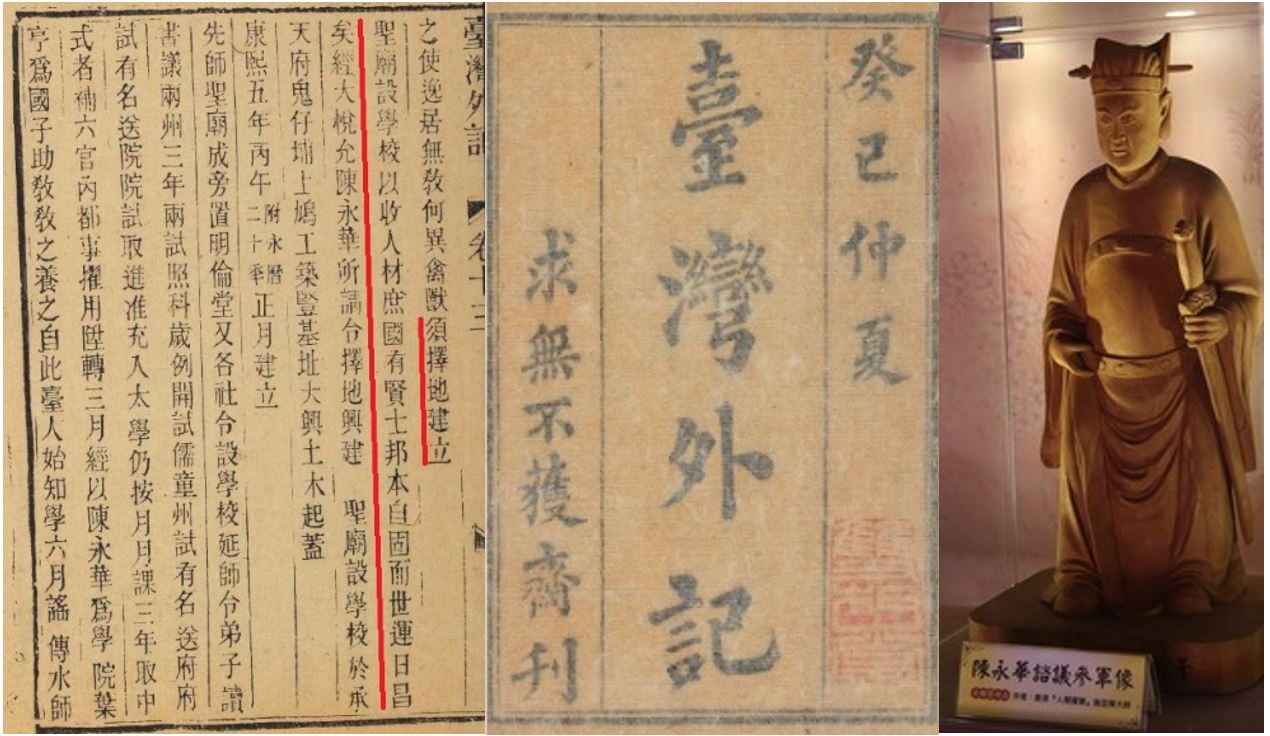 臺灣外記 卷十三
之使逸居無敎何異禽獸須擇地建立
聖廟設學校以收人材庶國有賢士邦本自固而世運日昌
矣經大悅允陳永華所請令擇地興建 聖廟設學校於承
天府鬼仔埔上鳩工築豎基址大興土木起蓋
康熙五年丙午附永曆二十季正月建立
先師聖廟成旁置明倫堂又各社令設學校延師令弟子讀
書議兩州三年兩試照科歲例開試儒童州試有名送府府
試有名送院院試取進准充入太學仍按月月課三年取中
式者補六官內都事擢用陞轉三月經以陳永華爲學院葉
亨爲國子助敎敎之養之自此臺人始知學六月謠傳水師
癸巳仲夏
臺灣外記
求無不獲齋刊
陳永華諮議參軍像